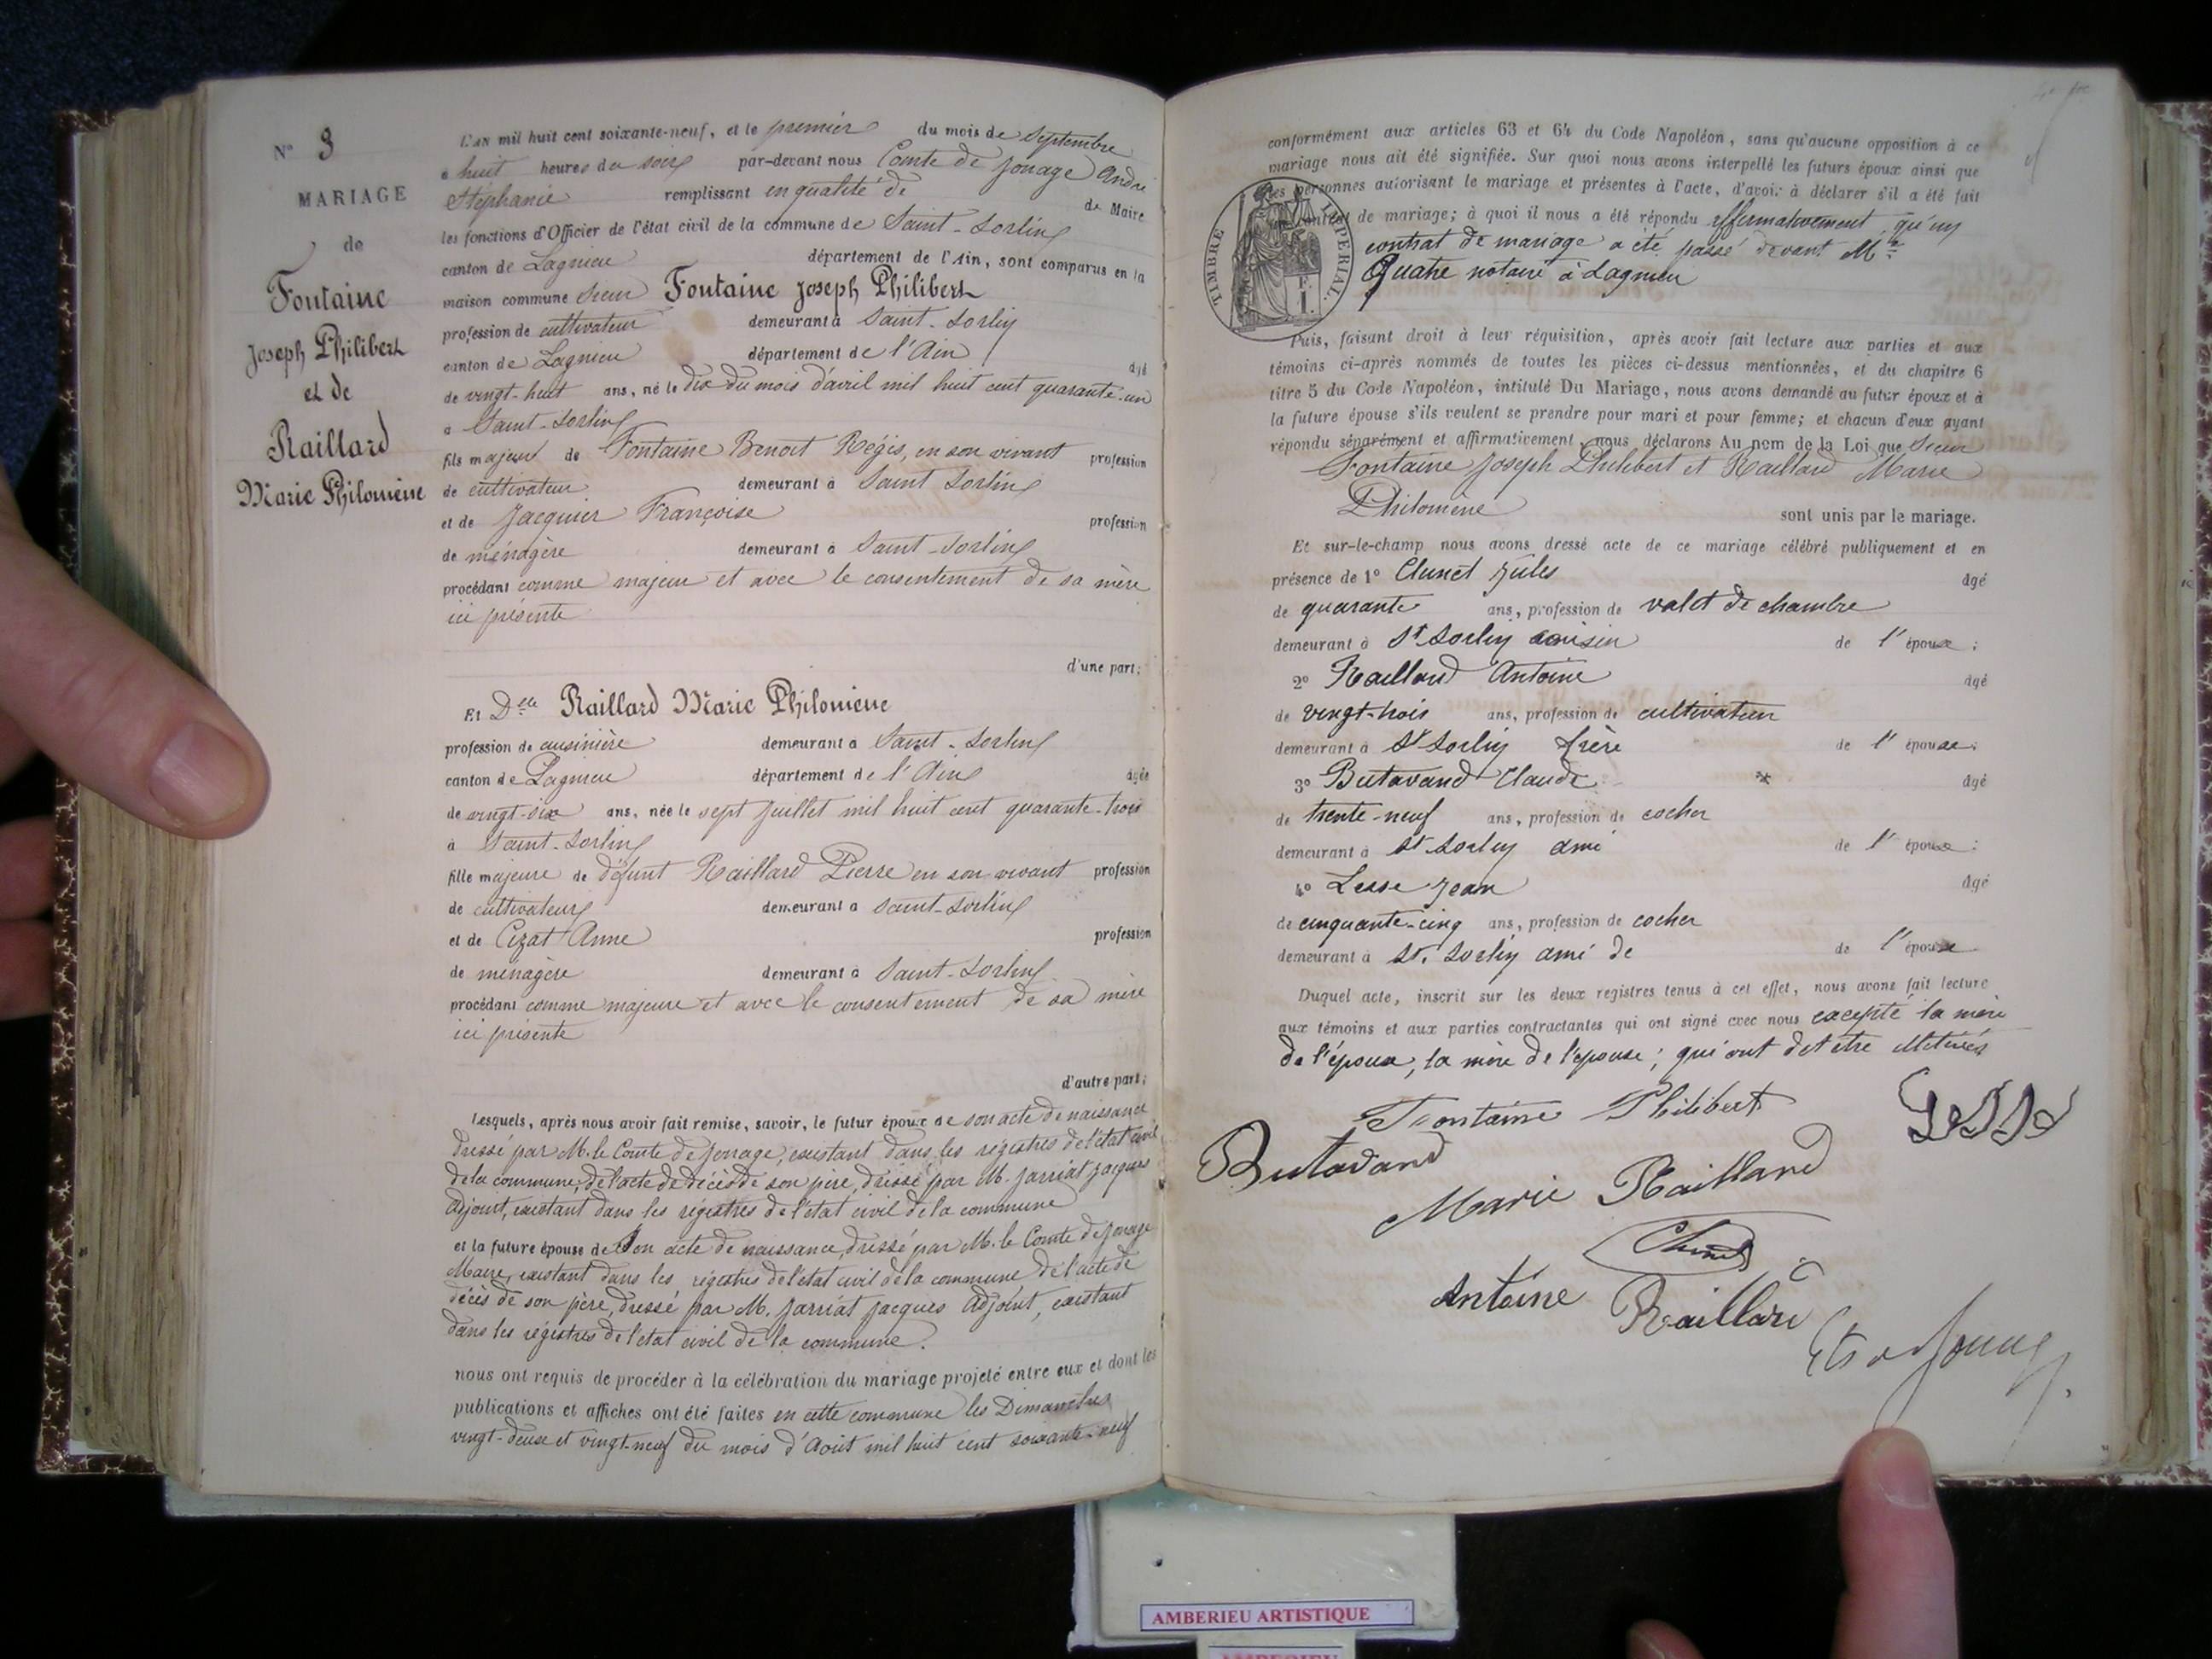 N° 3
MARIAGE
de
Fontaine
Joseph Philibert
et de
Raillard
Marie Philomène
L'AN mil huit cent soixante-neuf, et le premier du mois de Septembre
à huit heures du soir par-devant nous Comte de Jonage André
Stéphanie remplissant en qualité de de Maire
les fonctions d'Officier de l'état civil de la commune de Saint-Sorlin
canton de Lagnieu département de l'Ain, sont comparus en la
maison commune Sieur Fontaine Joseph Philibert
profession de cultivateur demeurant à Saint-Sorlin
canton de Lagnieu département de l'Ain âgé
de vingt-huit ans, né le dix du mois d'avril mil huit cent quarante-un
à Saint-Sorlin
fils majeur de Fontaine Benoit Régis, en son vivant profession
de cultivateur demeurant à Saint Sorlin
et de Jacquier Françoise profession
de ménagère demeurant à Saint-Sorlin
procédant comme majeur et avec le consentement de sa mère
ici présente
d'une part;
Et Delle Raillard Marie Philomène
profession de cuisinière demeurant à Saint-Sorlin
canton de Lagnieu département de l'Ain âgée
de vingt-six ans, née le sept Juillet mil huit cent quarante-trois
à Saint-Sorlin
fille majeure de défunt Raillard Pierre en son vivant profession
de cultivateur demeurant à Saint-Sorlin
et de Cizat Anne profession
de ménagère demeurant à Saint-Sorlin
procédant comme majeure et avec le consentement de sa mère
ici présente
d'autre part;
Lesquels, après nous avoir fait remise, savoir, le futur époux de son acte de naissance
dressé par M. le Comte de Jonage, existant dans les registres de l'état civil
de la commune, de l'acte de décès de son père, dressé par M. Jarriat Jacques
Adjoint, existant dans les régistres de l'état civil de la commune
et la future épouse de Son acte de naissance, dressé par M. le Comte de Jonage
Maire, existant dans les régistres de l'état civil de la commune de l'acte de
décès de son père, dressé par M. Jarriat Jacques Adjoint, existant
dans les régistres de l'état civil de la commune.
nous ont requis de procéder à la célébration du mariage projeté entre eux et dont les
publications et affiches ont été faites en cette commune les Dimanches
vingt-deux et vingt-neuf du mois d'Août mil huit cent soixante-neuf
conformément aux articles 63 et 64 du Code Napoléon, sans qu'aucune opposition à ce
mariage nous ait été signifiée. Sur quoi nous avons interpellé les futurs époux ainsi que
les personnes autorisant le mariage et présentes à l'acte, d'avoir à déclarer s'il a été fait
contrat de mariage; à quoi il nous a été répondu affirmativement, qu'un
contrat de mariage a été passé devant Me
Quatre notaire à Lagnieu
TIMBRE IMPERIAL.
F.
1.
Puis, faisant droit à leur réquisition, après avoir fait lecture aux parties et aux
témoins ci-après nommés de toutes les pièces ci-dessus mentionnées, et du chapitre 6
titre 5 du Code Napoléon, intitulé Du Mariage, nous avons demandé au futur époux et à
la future épouse s'ils veulent se prendre pour mari et pour femme; et chacun d'eux ayant
répondu séparément et affirmativement, nous déclarons Au nom de la Loi que Sieur
Fontaine Joseph Philibert et Raillard Marie
Philomène sont unis par le mariage.
Et sur-le-champ nous avons dressé acte de ce mariage célébré publiquement et en
présence de 1° Clunet Jules âgé
de quarante ans, profession de valet de chambre
demeurant à St Sorlin cousin de l'épouse;
2° Raillard Antoine âgé
de vingt-trois ans, profession de cultivateur
demeurant à St Sorlin frère de l'épouse;
3° Butavand Claude âgé
de trente-neuf ans, profession de cocher
demeurant à St Sorlin ami de l'épouse;
4° Lesse Jean âgé
de cinquante-cinq ans, profession de cocher
demeurant à St. Sorlin ami de de l'épouse
Duquel acte, inscrit sur les deux registres tenus à cet effet, nous avons fait lecture
aux témoins et aux parties contractantes qui ont signé avec nous excepté la mère
de l'époux, la mère de l'épouse; qui ont dit être illetrées
Fontaine Philibert
Lesse
Butavand
Marie Raillard
Clunet
Antoine Raillard
Cte de Jonage
AMBERIEU ARTISTIQUE
AMBERIEU